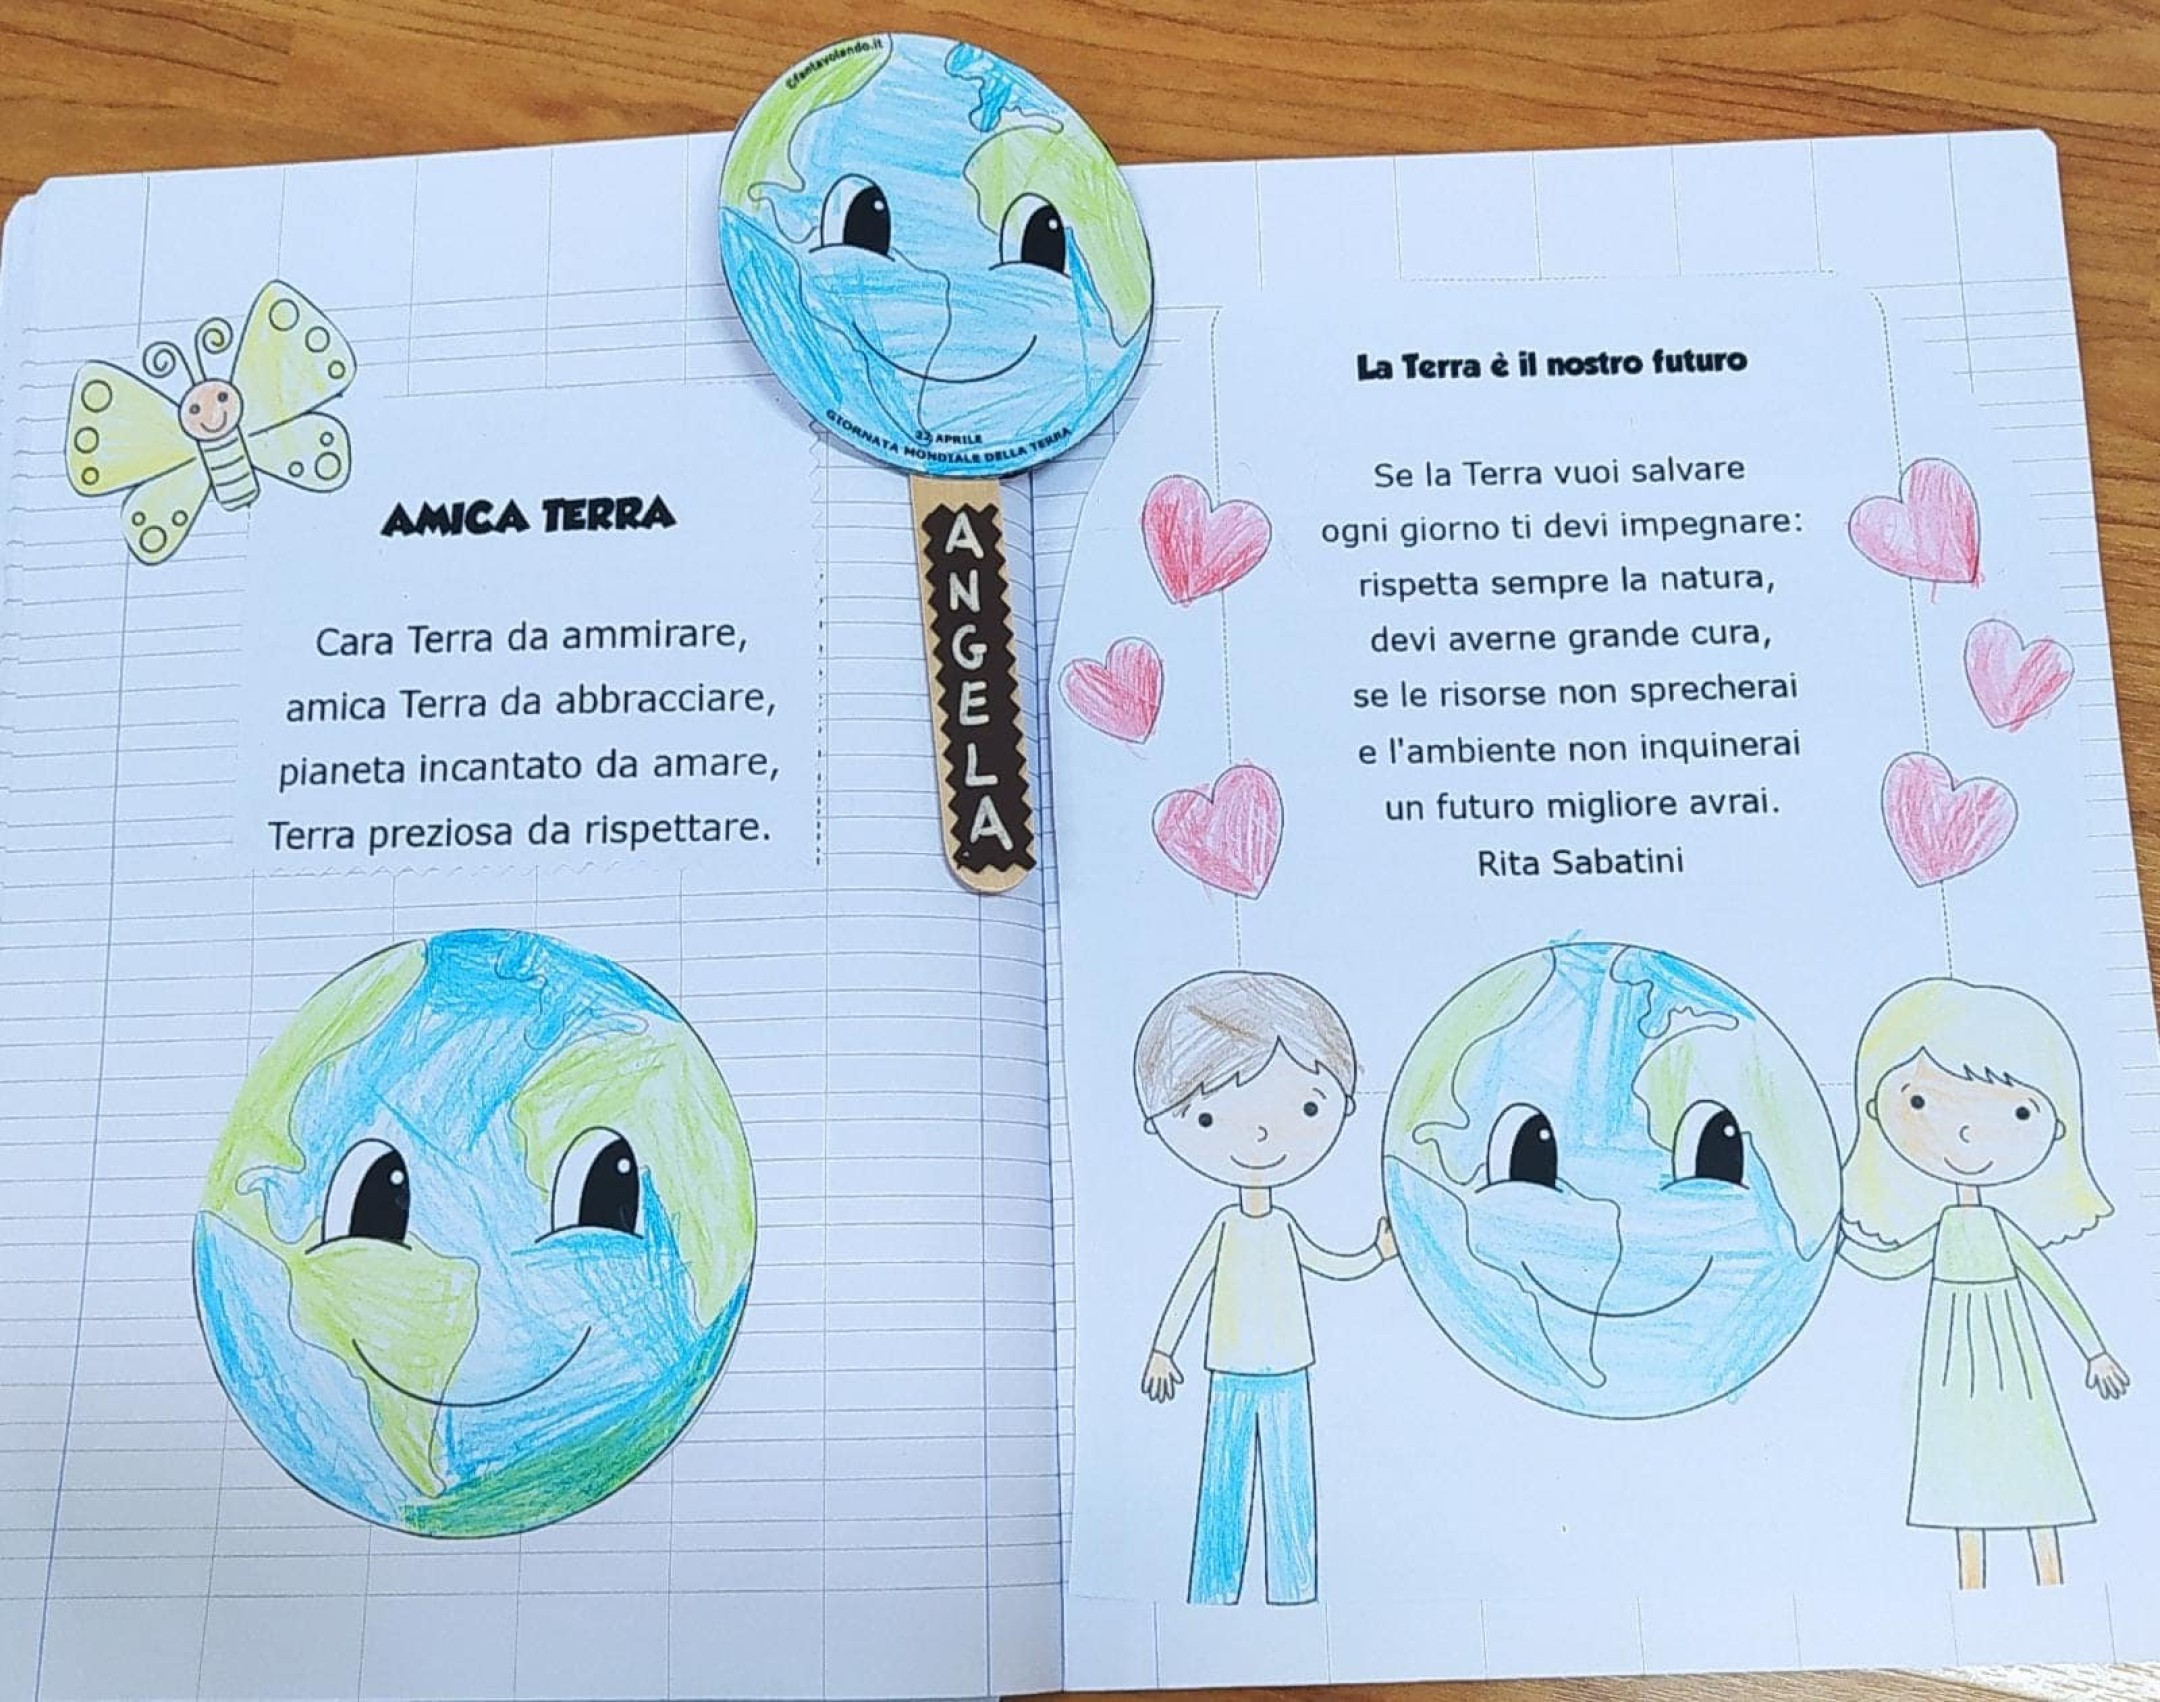 AMICA TERRA
Cara Terra da ammirare,
amica Terra da abbracciare,
pianeta incantato da amare,
Terra preziosa da rispettare.
©fantavolando.it
22 APRILE
GIORNATA MONDIALE DELLA TERRA
ANGELA
La Terra è il nostro futuro
Se la Terra vuoi salvare
ogni giorno ti devi impegnare:
rispetta sempre la natura,
devi averne grande cura,
se le risorse non sprecherai
e l'ambiente non inquinerai
un futuro migliore avrai.
Rita Sabatini